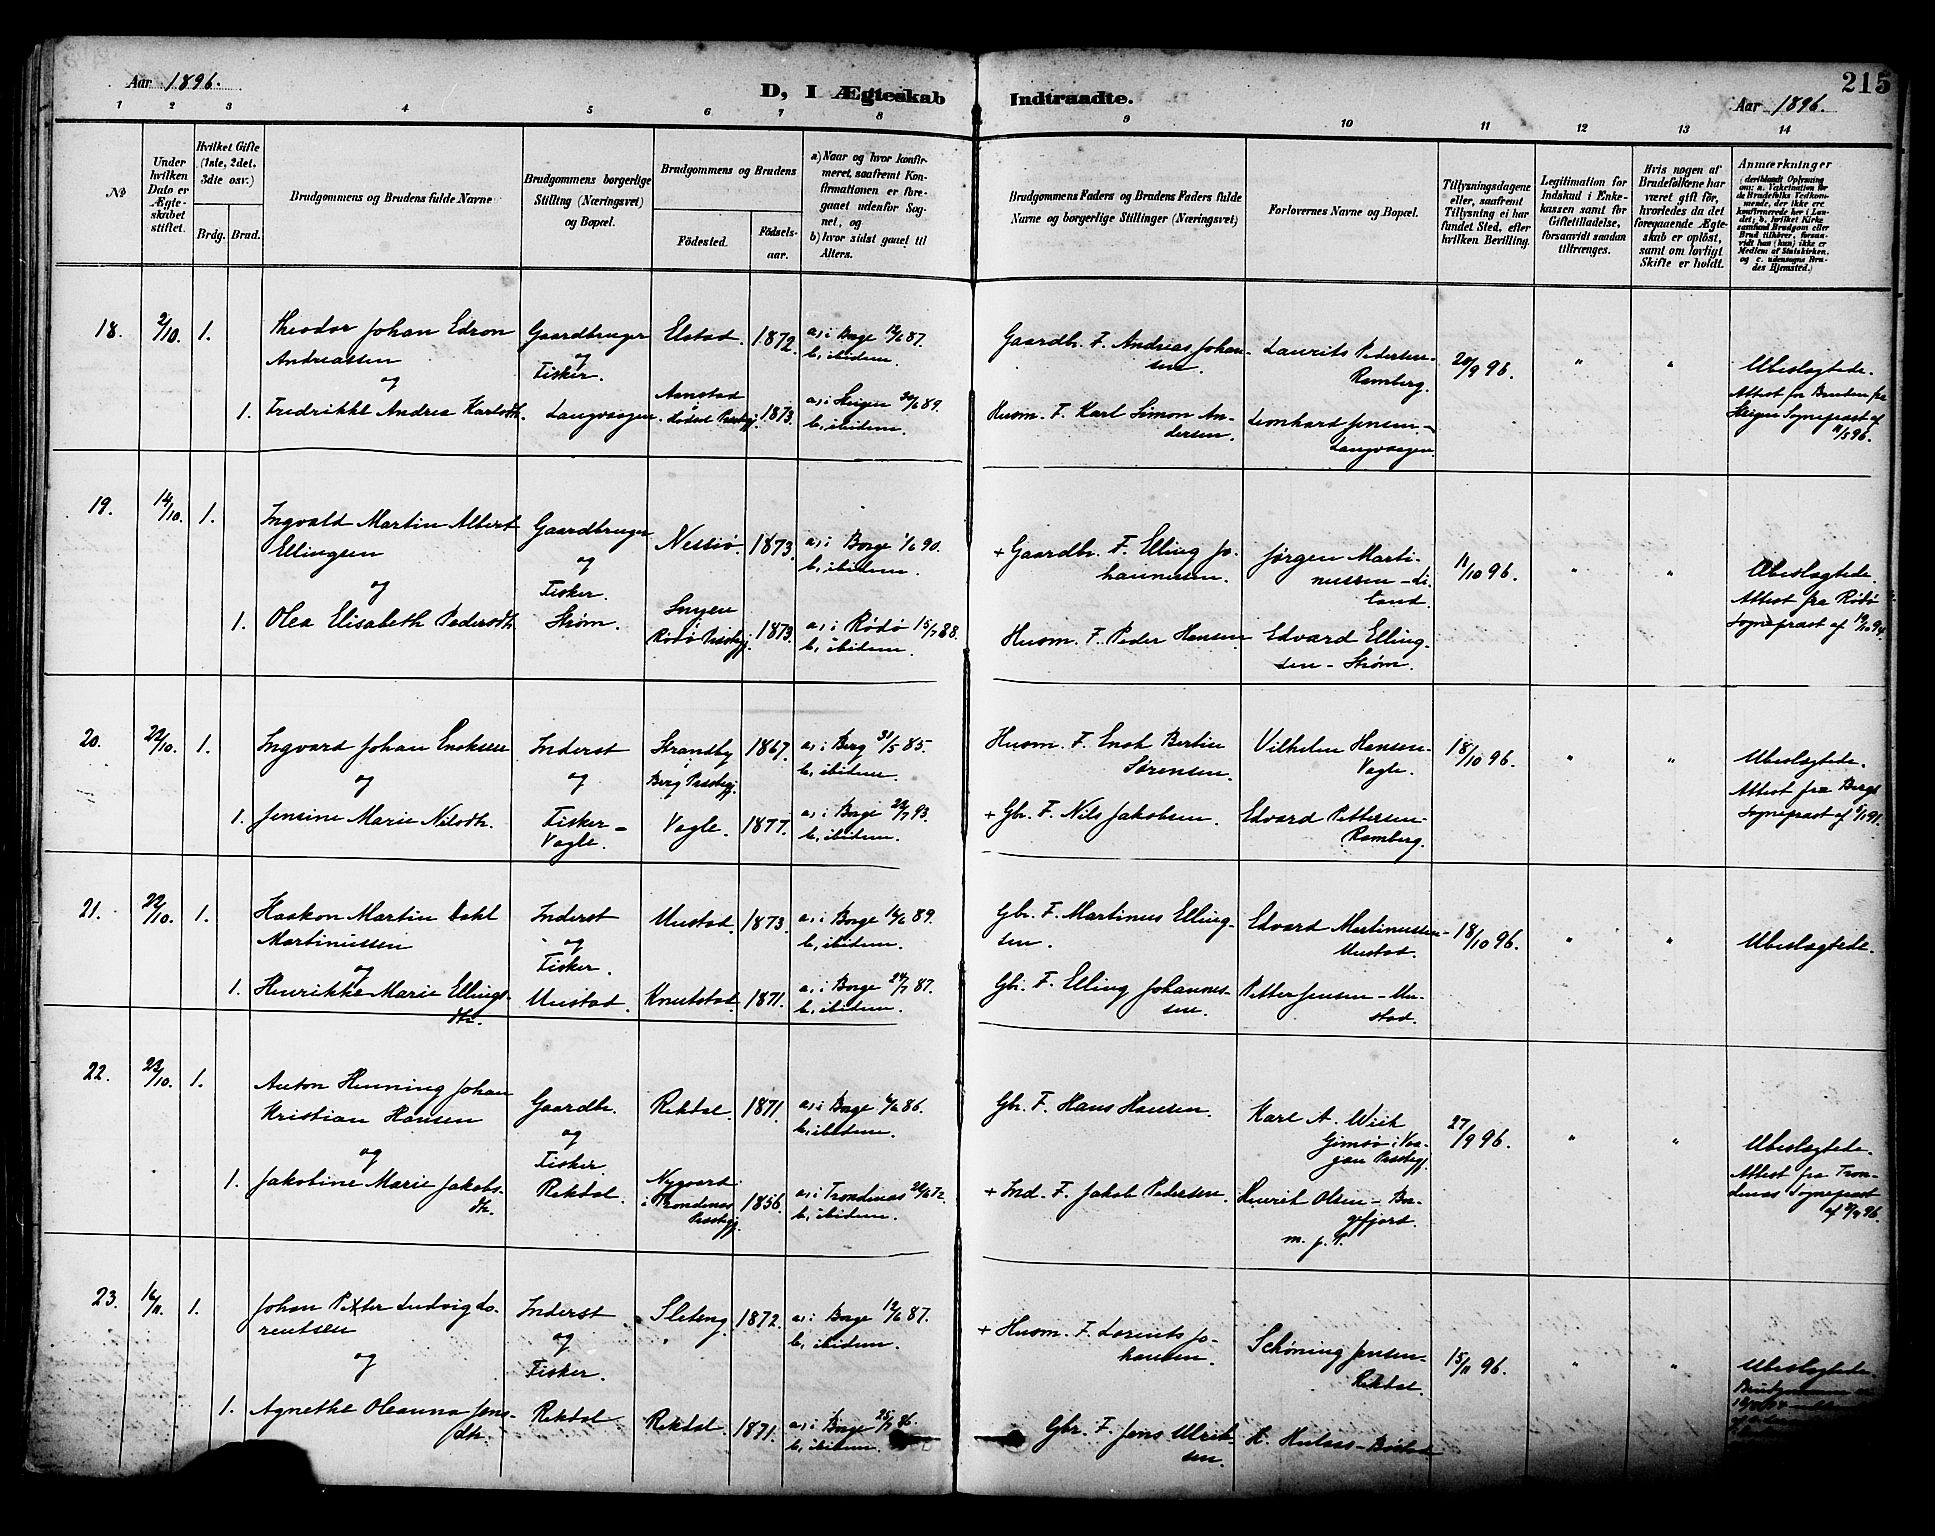 Aar 1896.
D, I Ægteskab Indtraadte.
215
Aar 1896.
1 2 3 4 5 6 7 8 9 10 11 12 13 14
No
Under hvilken Dato er Ægteskabet stiftet.
Hvilket Gifte (1ste, 2det, 3dte osv.)
Brdg. Brud.
Brudgommens og Brudens fulde Navne
Brudgommens borgerlige Stilling (Næringsvei) og Bopæl.
Brudgommens og Brudens
Fødested.
Fødsels-aar.
a) Naar og hvor konfirmeret, saafremt Konfirmationen er foregaaet udenfor Sognet, og
b) hvor sidst gaaet til Alters.
Brudgommens Faders og Brudens Faders fulde Navne og borgerlige Stillinger (Næringsvei)
Forlovernes Navne og Bopæl.
Tillysningsdagene eller, saafremt Tillysning ei har fundet Sted, efter hvilken Bevilling.
Legitimation for Indskud i Enkekassen samt for Giftetilladelse, forsaavidt saadan tiltrænges.
Hvis nogen af Brudefolkene har været gift før, hvorledes da det foregaaende Ægteskab er opløst, samt om lovligt Skifte er holdt.
Anmærkninger (deriblandt Oplysning om: a. Vakcination for de Brudefolks Vedkommende, der ikke ere konfirmerede her i Landet; b. hvilket Kirkesamfund Brudgom eller Brud tilhører, forsaavidt han (hun) ikke er Medlem af Statskirken, og c. udensogns Brudes Hjemsted.)
18. 2/10. 1. Theodor Johan Edron Andreassen
og
1. Fredrikke Andrea Karlsdt.
Gaardbruger og Fisker. Langvaagen
Elstad. 1872. a, i Borge 12/6 87. b, ibidem.
Aanstad i Lødøs Præstegj. 1873. a, i Steigen 30/6 89. b, ibidem.
Gaardb. F. Andreas Johansen
Husm. F. Karl Simon Andersen.
Laurits Pedersen- Ramberg.
Leonhard Jensen- Langvaagen.
20/9 96. " "
Ubeslægtede.
Attest for Bruden fra Steigen Sognepræst af 11/5 96.
19. 14/10. 1. Ingvald Martin Albert Ellingsen
og
1. Olea Elisabeth Pedersdt.
Gaardbruger og Fisker. Strøm.
Nessiø. 1873. a, i Borge 1/6 90. b, ibidem.
i Rødø Præstegj. 1873. a, i Rødø 15/7 88. b, ibidem.
+ Gaardbr. F. Elling Johannesen.
Husm. F. Peder Hansen
Jørgen Martinussen - Liland.
Edvard Ellingsen - Strøm.
11/10 96. " "
Ubeslægtede.
Attest fra Rødø Sognepræst af 19/10 94.
20. 22/10. 1. Ingvard Johan Enoksen
og
1. Jensine Marie Nilsdt.
Inderst og Fisker - Vagle.
Strandby i Berg Præstegj. 1867. a, i Berg 31/5 85. b, ibidem.
Vagle. 1877. a, i Borge 23/7 93. b, ibidem.
Husm. F. Enok Bertin Sørensen.
+ Gbr. F. Nils Jakobsen.
Vilhelm Hansen- Vagle.
Edvard Pettersen- Ramberg.
18/10 96. " "
Ubeslægtede.
Attest fra Bergs Sognepræst af 5/1 91.
21. 22/10. 1. Haakon Martin Dahl Martinussen
og
1. Henrikke Marie Ellingsdt.
Inderst og Fisker. Mustad.
Mustad. 1873. a, i Borge 16/6 89. b, ibidem.
Knutstad. 1871. a, i Borge 24/7 87. b, ibidem.
Gbr. F. Martinus Ellingsen.
Gbr. F. Elling Johannessen.
Edvard Martinussen- Mustad.
Petter Jensen - Mustad.
18/10 96. " "
Ubeslægtede.
22. 23/10. 1. Anton Henning Johan Kristian Hansen
og
1. Jakobine Marie Jakobsdt.
Gaardbr. og Fisker. Rekdal.
Rekdal. 1871. a, i Borge 6/6 86. b, ibidem.
Nygaard i Trondenæs Præstegj. 1856. a, i Trondenæs 20/6 72. b, ibidem.
Gbr. F. Hans Hansen.
+ Ind. F. Jakob Pedersen.
Karl A. Wiik Gimsø i Vaagan Præstegj.
Henrik Olsen - Bogefjord.
m. p. P.
27/9 96. " "
Ubeslægtede.
Attest fra Trondenæs Sognepræst af 3/9 96.
23. 16/11. 1. Johan Petter Ludvig Lorentsen
og
1. Agnethe Oleanna Jensdt.
Inderst og Fisker. Rekdal
Sleteng 1872. a, i Borge 12/6 87. b, ibidem.
Rekdal 1871. a, i Borge 25/7 86. b, ibidem.
+ Husm. F. Lorents Johansen.
Gbr. F. Jens Ulriksen.
Schøning Jensen- Rekdal.
H. Hulaas - Bøstad
15/11 96. " "
Ubeslægtede.